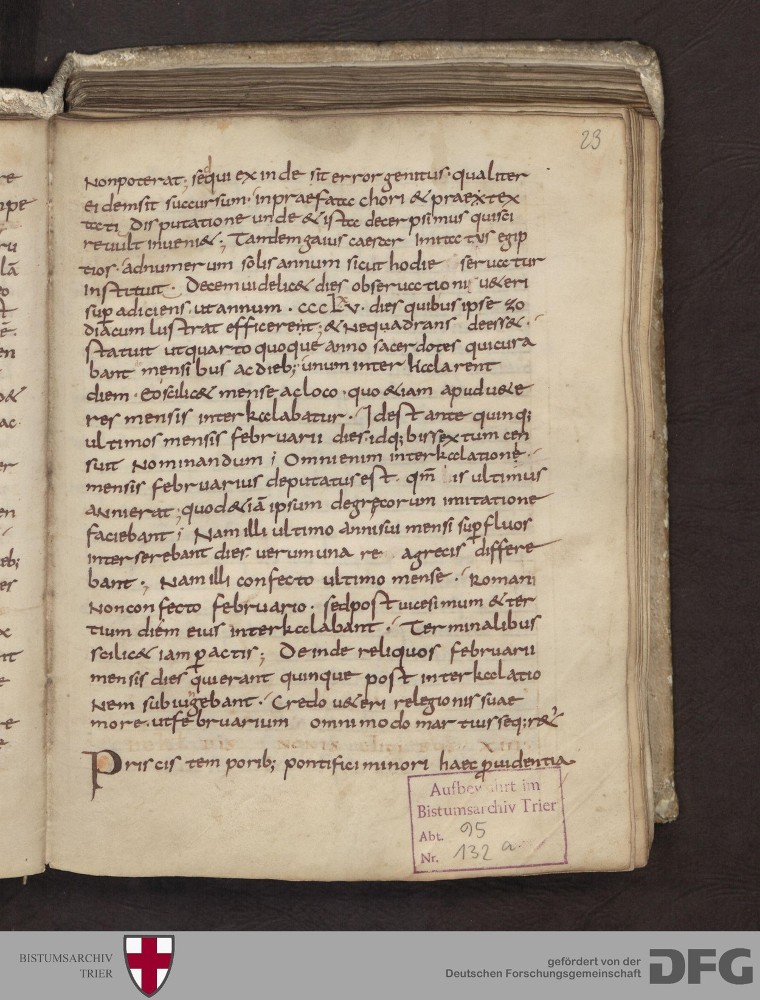 23
Nonpoterat; sequi exinde sit error genitus. qualiter
ei demsit succursum. inpraefata chori & praetex
tati disputatione unde & ista decerpsimus quisci
re uult inueni&; Tandem gaius caesar imitatus egip
tios. adnumerum solis annum sicut hodie seruatur
instituit. Decem uidelic& dies obseruationi u&eri
sup adiciens. ut annum. ccclxv. dies quibus ipse zo
diacum lustrat efficerent; & nequadrans deess&.
statuit ut quarto quoque anno sacerdotes qui cura
bant mensibus ac dieb; unum interkalarent
diem. eo scilic& mense ac loco. quo &iam apud u&e
res mensis interkalabatur. Idest ante quinq;
ultimos mensis februarii dies. idq; bissextum cen
suit nominandum; Omni enim interkalatione.
mensis februarius deputatus est. qm̄ is ultimus
anni erat; quod &iā ipsum degrecorum imitatione
faciebant; Nam illi ultimo anni sui mensi supfluos
interserebant dies. uerum una re agrecis differe
bant; Nam illi confecto ultimo mense. Romani
non confecto februario. sed post uicesimum & ter
tium diem eius interkalabant. Terminalibus
scilic& iam pactis; Deinde reliquos februarii
mensis dies qui erant quinque post interkalatio
nem subiugebant. Credo u&eri relegionis suae
more. ut februarium omnimodo martius seq;r&
Priscis temporib; pontifici minori haec puidentia
Aufbewahrt im
Bistumsarchiv Trier
Abt. 95
Nr. 132 a.
BISTUMSARCHIV
TRIER
gefördert von der
Deutschen Forschungsgemeinschaft
DFG